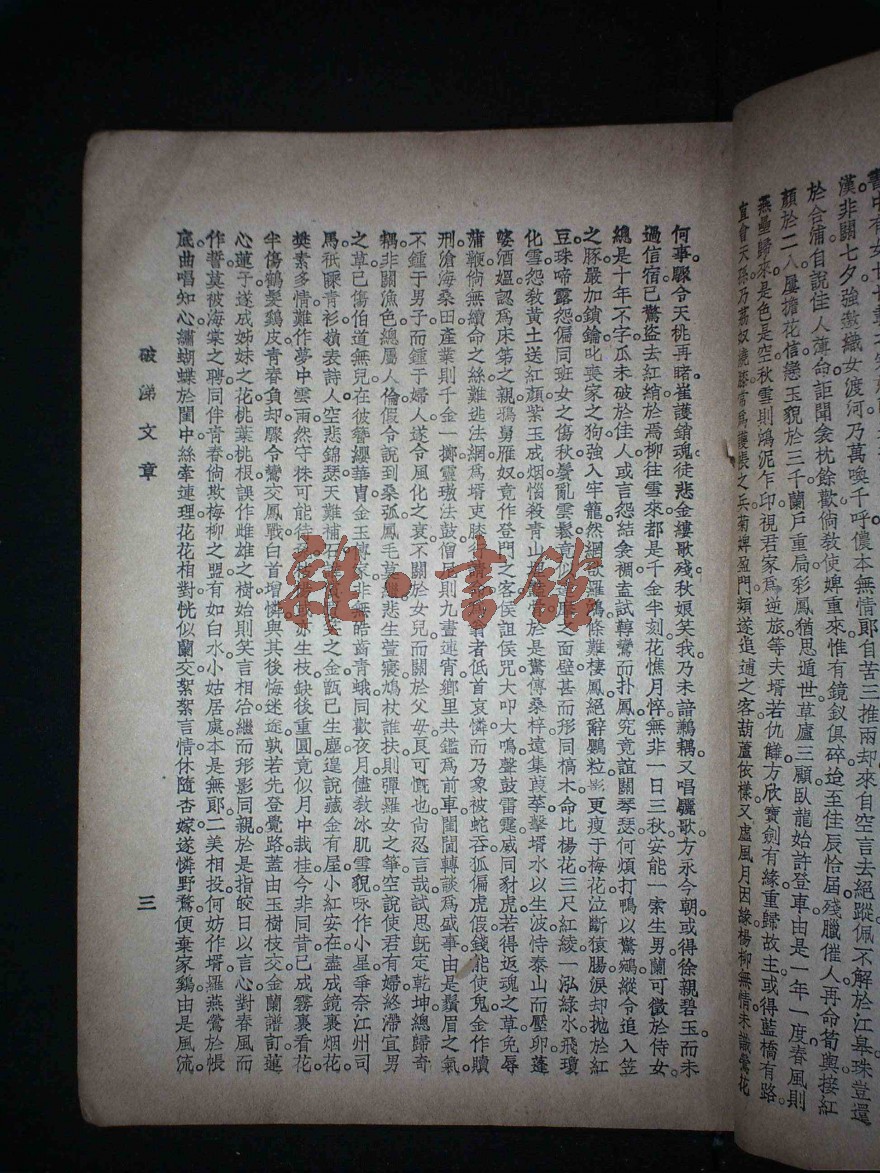 書中有女
漢。非關七夕。強邀織女渡河。乃萬喚千呼。儂本無情。郞自苦。三推兩却。來自空言去絕蹤。佩不解於江皋。珠豈還
於合浦。自說佳人薄命。詎聞衾枕餘歡。倘敎使婢重來。惟有鏡釵俱碎。迨至佳辰恰屆。殘臘催人。再命荀輿。接紅
顏於二八。屢擔花信。戀玉貌於三千。蘭戶重扃。彩鳳猶思遁世。草廬三顧。臥龍始許登車。由是一年一度。春風則
燕壘歸來。是色是空。秋雪則鴻泥乍印。視君家爲逆旅。等夫壻若仇讎。方欣寶劍有緣。重歸故主。或得藍橋有路。
直會天孫。乃荔奴繞膝。常爲護帳之兵。菊婢盈門。頻遂追逋之客。葫蘆依樣。又虛風月因緣。楊柳無情。未識鶯花
何事。驟令天桃再睹。崔護銷魂。徒悲金縷歌殘。秋娘笑我。乃未諳鶼耦。又唱驪歌。方永今朝。或得徐親碧玉。而未
過信宿。已驚盜去紅綃。於焉柳往雪來。都是千金半刻。花憔月悴。無非一日三秋。安能一索生男。蘭可徵於侍女。
總是十年不字。瓜未破於佳人。或言怨結衾裯。盍試轉鸞而扑鳳。究竟誼關琴瑟。何煩打鴨以驚鴛。縱令追入笠
之豚。嚴加鎖鑰。叱喪家之狗。強入牢籠。然網欲羅鴻。條難棲鳳。絕辭鸚粒。影更瘦于梅花。泣斷猿腸。淚却拋於紅
豆。珠啼露怨。偏同班女之傷秋。鬢亂雲鬆。竟似之面壁。甚而形同槁木。命比楊花。三尺紅綾。一泓綠水。飛瓊
化雪。怨教黃土送紅顏。紫玉成烟。惱殺青山於是驚傳桑梓。遠集葭莩。擊壻水以生波。恃泰山而壓卵。蓬
婆酒媼。認爲床笫之親。鴉舅雁奴。竟作登門之客。侯詛侯咒。大叩大鳴。聲鼓雷霆。威同豺虎。若得返魂之草。免辱
蒲鞭。倘無續命之絲。難逃法網。爲壻吏膝行者。低首哀憐。而乃象被蛇吞。狐偏虎假。錢能使鬼。金作贖
刑。滄海桑田。產業則千金一擲。靈璈法鼓。僧則九晝連宵。鄉里共鑑爲前車。閨闥轉談爲盛事。由是鬚眉之氣。
不鍾于男子。而鍾于婦人。遂令風化之衰。不關於女兒。而關於父毋。良可慨也。尙忍言哉。試思旣定乾坤。總歸奇
耦。非關漁色。總屬人倫。假令說到桑弧。鳳毛莫繼。悲生萱寢。鳩杖誰扶。則彈羅女之箏。空說使君有婦。終滯宜男
之草。已傷伯道無兒。在彼簪纓華冑。金玉傳家。非無皓齒青蛾。同歡夜月。儘敎冰肌雪貌。咏作小星。爭奈江州司
馬。秪賸青衫。嶺表詩人。空悲錦瑟。天難補石。之金甑已生塵。遑說藏金有屋。小紅安在。盡成鏡裏烟花。
樊素多情。難作夢中雲雨。然守株可能待亦生枝。缺後重圓。竟似月中栽桂。今非同昔。已成霧裏看花。
半傷鶴髮鷄皮。靑春負却。驟令鸞交鳳戰。白首增憐。與其後悔迷途。孰若先登覺路。蓋由玉樹枝交。金蘭譜訂。蓮
心蓮子。遂成姊妹之花。桃葉桃根。誤作雌雄之樹。始則笑言相洽。繼而形影同親。於是指皎日以言心。對春風而
作誓。莫被海棠之聘。同伴青春。倘欺梅柳之盟。有如白水。小姑居處。本是無郞。二美相投。何妨作壻。羅燕鶯於帳
底。曲唱知心。繡蝴蝶於閨中。絲牽連理。花花相對。恍似蘭交。絮絮言情。休隨杏嫁。遂憐野鶩。便棄家鷄。由是風流
破涕文章
三
雜·書館